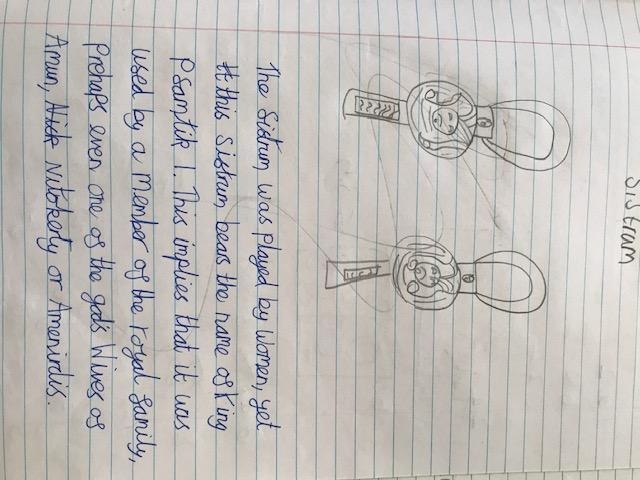 Sistrum
The Sistrum was played by women, yet
this Sistrum bears the name of King
Psamtik 1. This implies that it was
used by a member of the royal family,
prehaps even one of the gods Wives of
Amun, Nitokerty or Amenirdis.